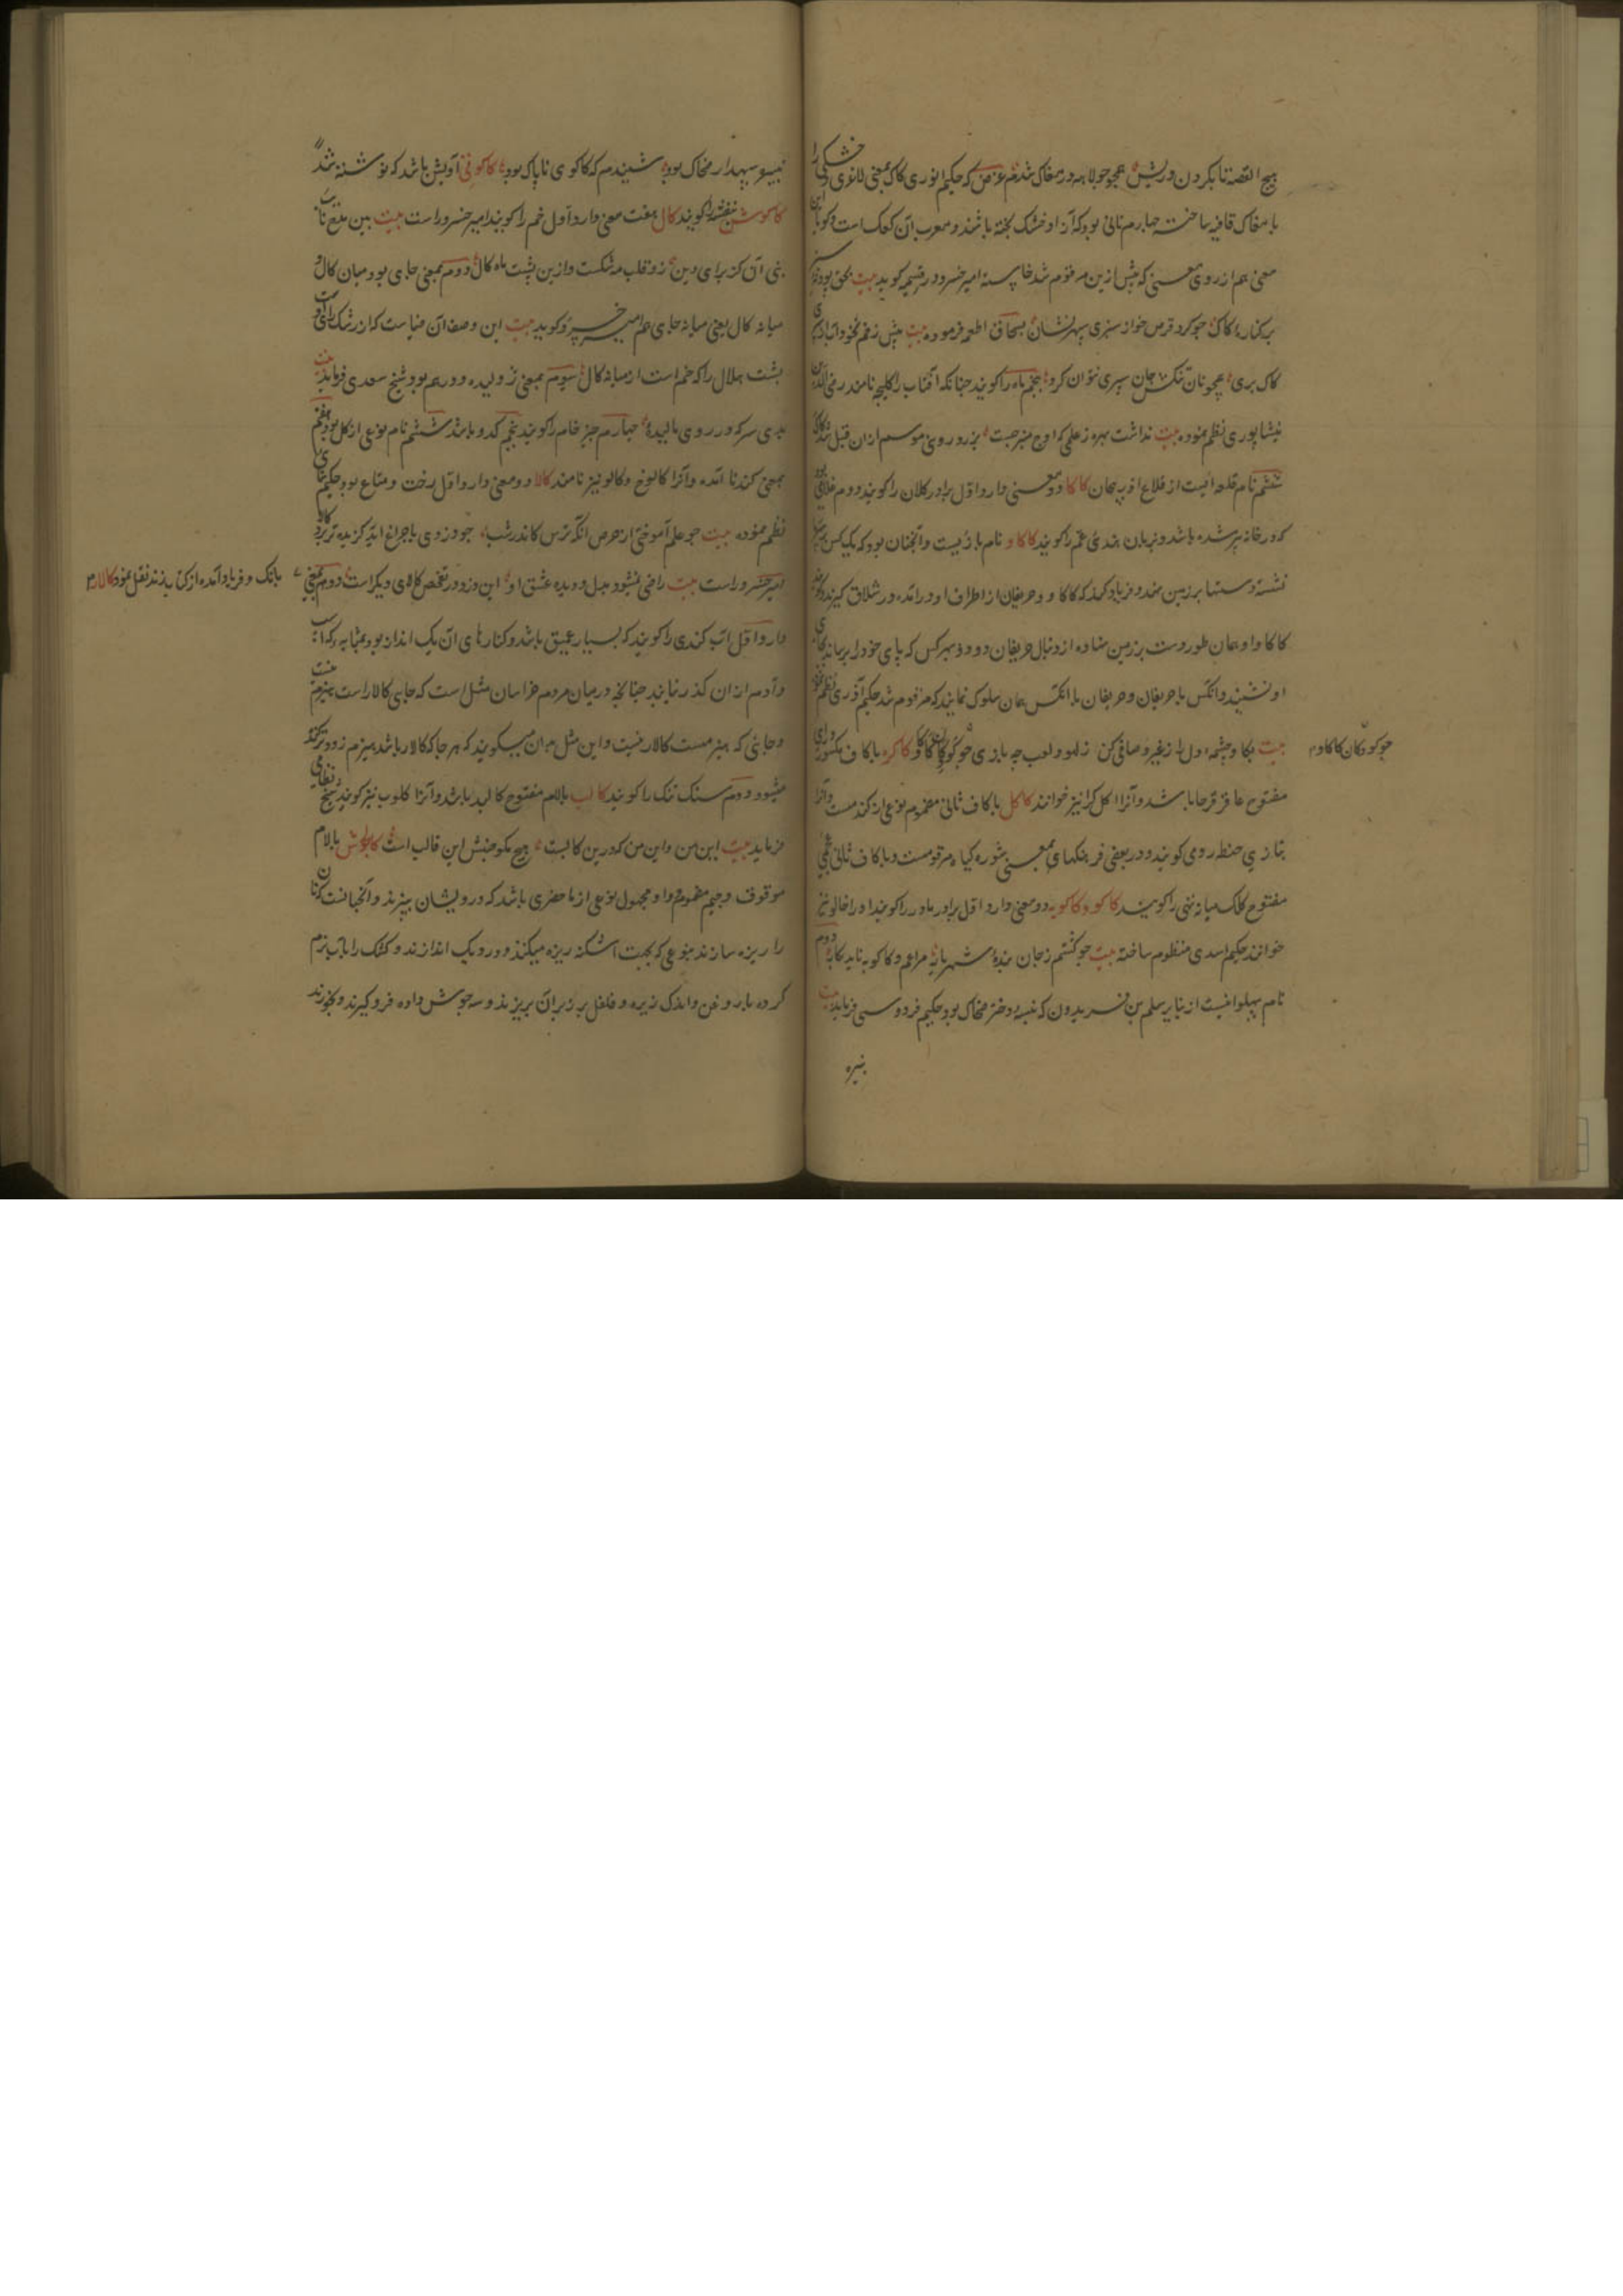 هیچ القصه تا بکردن در ریش همچو جولاهه در مغاک شدم غرض که حکیم انوری کاک بمعنی لاغری و خشکی را
با مغاک قافیه ساخته چهارم نانی بود که آنرا خشک پخته باشند و معرب آن کعک است و گویا این
معنی هم از روی معنی که پیش ازین مرقوم شد خاسته امیر خسرو در قسمیه گوید بیت بحق
بر کناره کاک چو گرد قرص خوان سپری سپهرنشان بسحاق اطعمه فرموده بیت پیش زخم
کاک بری همچو نان تنک جان سپری نتوان کرد پنجم ماه را گویند چنانکه آفتاب را کلیچه نامند رضی الدین
نیشاپوری نظم نموده بیت نداشت بهره ز علمی که اوج منبر جست بزرد رویی موسم ازان قبل شد کاک
ششم نام قلعه ایست از قلاع آذربیجان کاکا دو معنی دارد اول برادر کلان را گویند دوم غلامی بود
که در خانه پیر شده باشد و بزبان هندی عم را گویند کاکاو نام بازیست و آنچنان بود که یک کس
نشسته دستها بر زمین نهد و فریاد کند که کاکاو و حریفان از اطراف او درآمده در شلاق گیرند و گویند
کاکاو او همان طور دست بر زمین نهاده از دنبال حریفان دود و بهر کس که پای خود را برساند بجای
او نشیند و انکس با حریفان و حریفان با انکس همان سلوک نمایند که مرقوم شد حکیم آذری نظم نموده
بیت بکا و چشمه دل را ز غیر و صافی کن ز لهو و لعب چه بازی چو کودکان کاکاو کاکره با کاف مکسور و رای
چو کودکان کاکاو
مفتوح عاقرقرحا باشد و آنرا اکل کرا نیز خوانند کاکل با کاف ثانی مضموم نوعی از گندمست و آنرا
بتازی حنطه رومی گویند و در بعضی فرهنگها بمعنی شوره گیاه مرقومست و با کاف ثانی عجمی
مفتوح کلک میانه تهی را گویند کاکو و کاکویه دو معنی دارد اول برادر مادر را گویند او را خالو نیز
خوانند حکیم اسدی منظوم ساخته بیت چو گشتم ز جان بنده شهریار مرا عم و کاکو نیاید بکار دوم
نام پهلوانیست از بنایر سلم بن فریدون که نبسه دختر ضحاک بود حکیم فردوسی فرماید بیت
نبیره
نبیره سپهدار ضحاک بود شنیدم که کاکوی ناپاک بود کاکوتی آویشن باشد که نوشته شد
کاکوش بنفشه را گویند کال هفت معنی دارد اول خم را گویند امیر خسرو راست بیت بین تیغ
بنی آن کز برای دین زد و قلب مه شکست و ازین پشت ماه کال دوم بمعنی جای بود و میان کال و
میانه کال یعنی میانه جای هم امیر خسرو گوید بیت این وصف آن میانست که از رشک
پشت هلال را که خم است از میانه کال سوم بمعنی ژولیده و درهم بود شیخ سعدی فرماید بیت
بدی سرکه در روی مالیده چهارم چیز خام را گویند پنجم کدو باشد ششم نام نوعی از گل بود هفتم
بمعنی گندنا آمده و آنرا کالوخ و کالو نیز نامند کالا دو معنی دارد اول رخت و متاع بود حکیم سنائی
نظم نموده بیت چو علم آموختی از حرص آنگه ترس کاندر شب چو دزدی با چراغ آید گزیده تر برد کالا
امیر خسرو راست بیت راضی نشود بدل دو دیده عشق او این دزد در تفحص کالای دیگر است دوم بمعنی
بانک و فریاد آمده از کتاب زند نقل نمود کالار
دارد اول آب کندی را گویند که بسیار عمیق باشد و کنارهای آن یک انداز بود بمثابه که اسب
و آدم ازان گذر نیابد چنانچه در میان مردم خراسان مثل است که جایی کالار است هیزم نیست
و جایی که هیزمست کالار نیست و این مثل بدان میگویند که هر جا که کالار باشد هیزم زود
میشود دوم سنک تنک را گویند کالب بلام مفتوح کالبد باشد و آنرا کلوب نیز گویند شیخ نظامی
فرماید بیت این من و این من که درین کالبست هیچ مگو جنبش این قالب است کالجوش بالام
موقوف و جیم مضموم و واو مجهول نوعی از ما حضری باشد که درویشان بپزند و آنچنانست که نان
را ریزه سازند بنوعی که بجهت اشکنه ریزه میکنند و در دیک اندازند و کشک را بآب نرم
کرده با روغن و اندک زیره و فلفل بر زبر آن بریزند و سه جوش داده فرو گیرند و بخورند